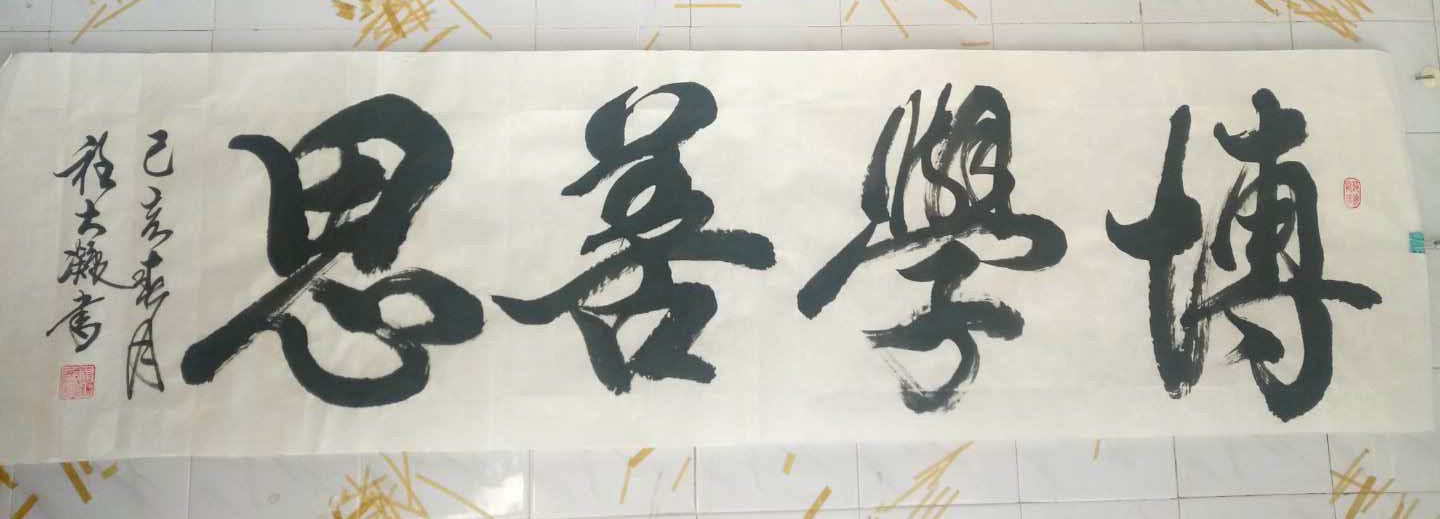 博學善思
己亥春月
程大凝書